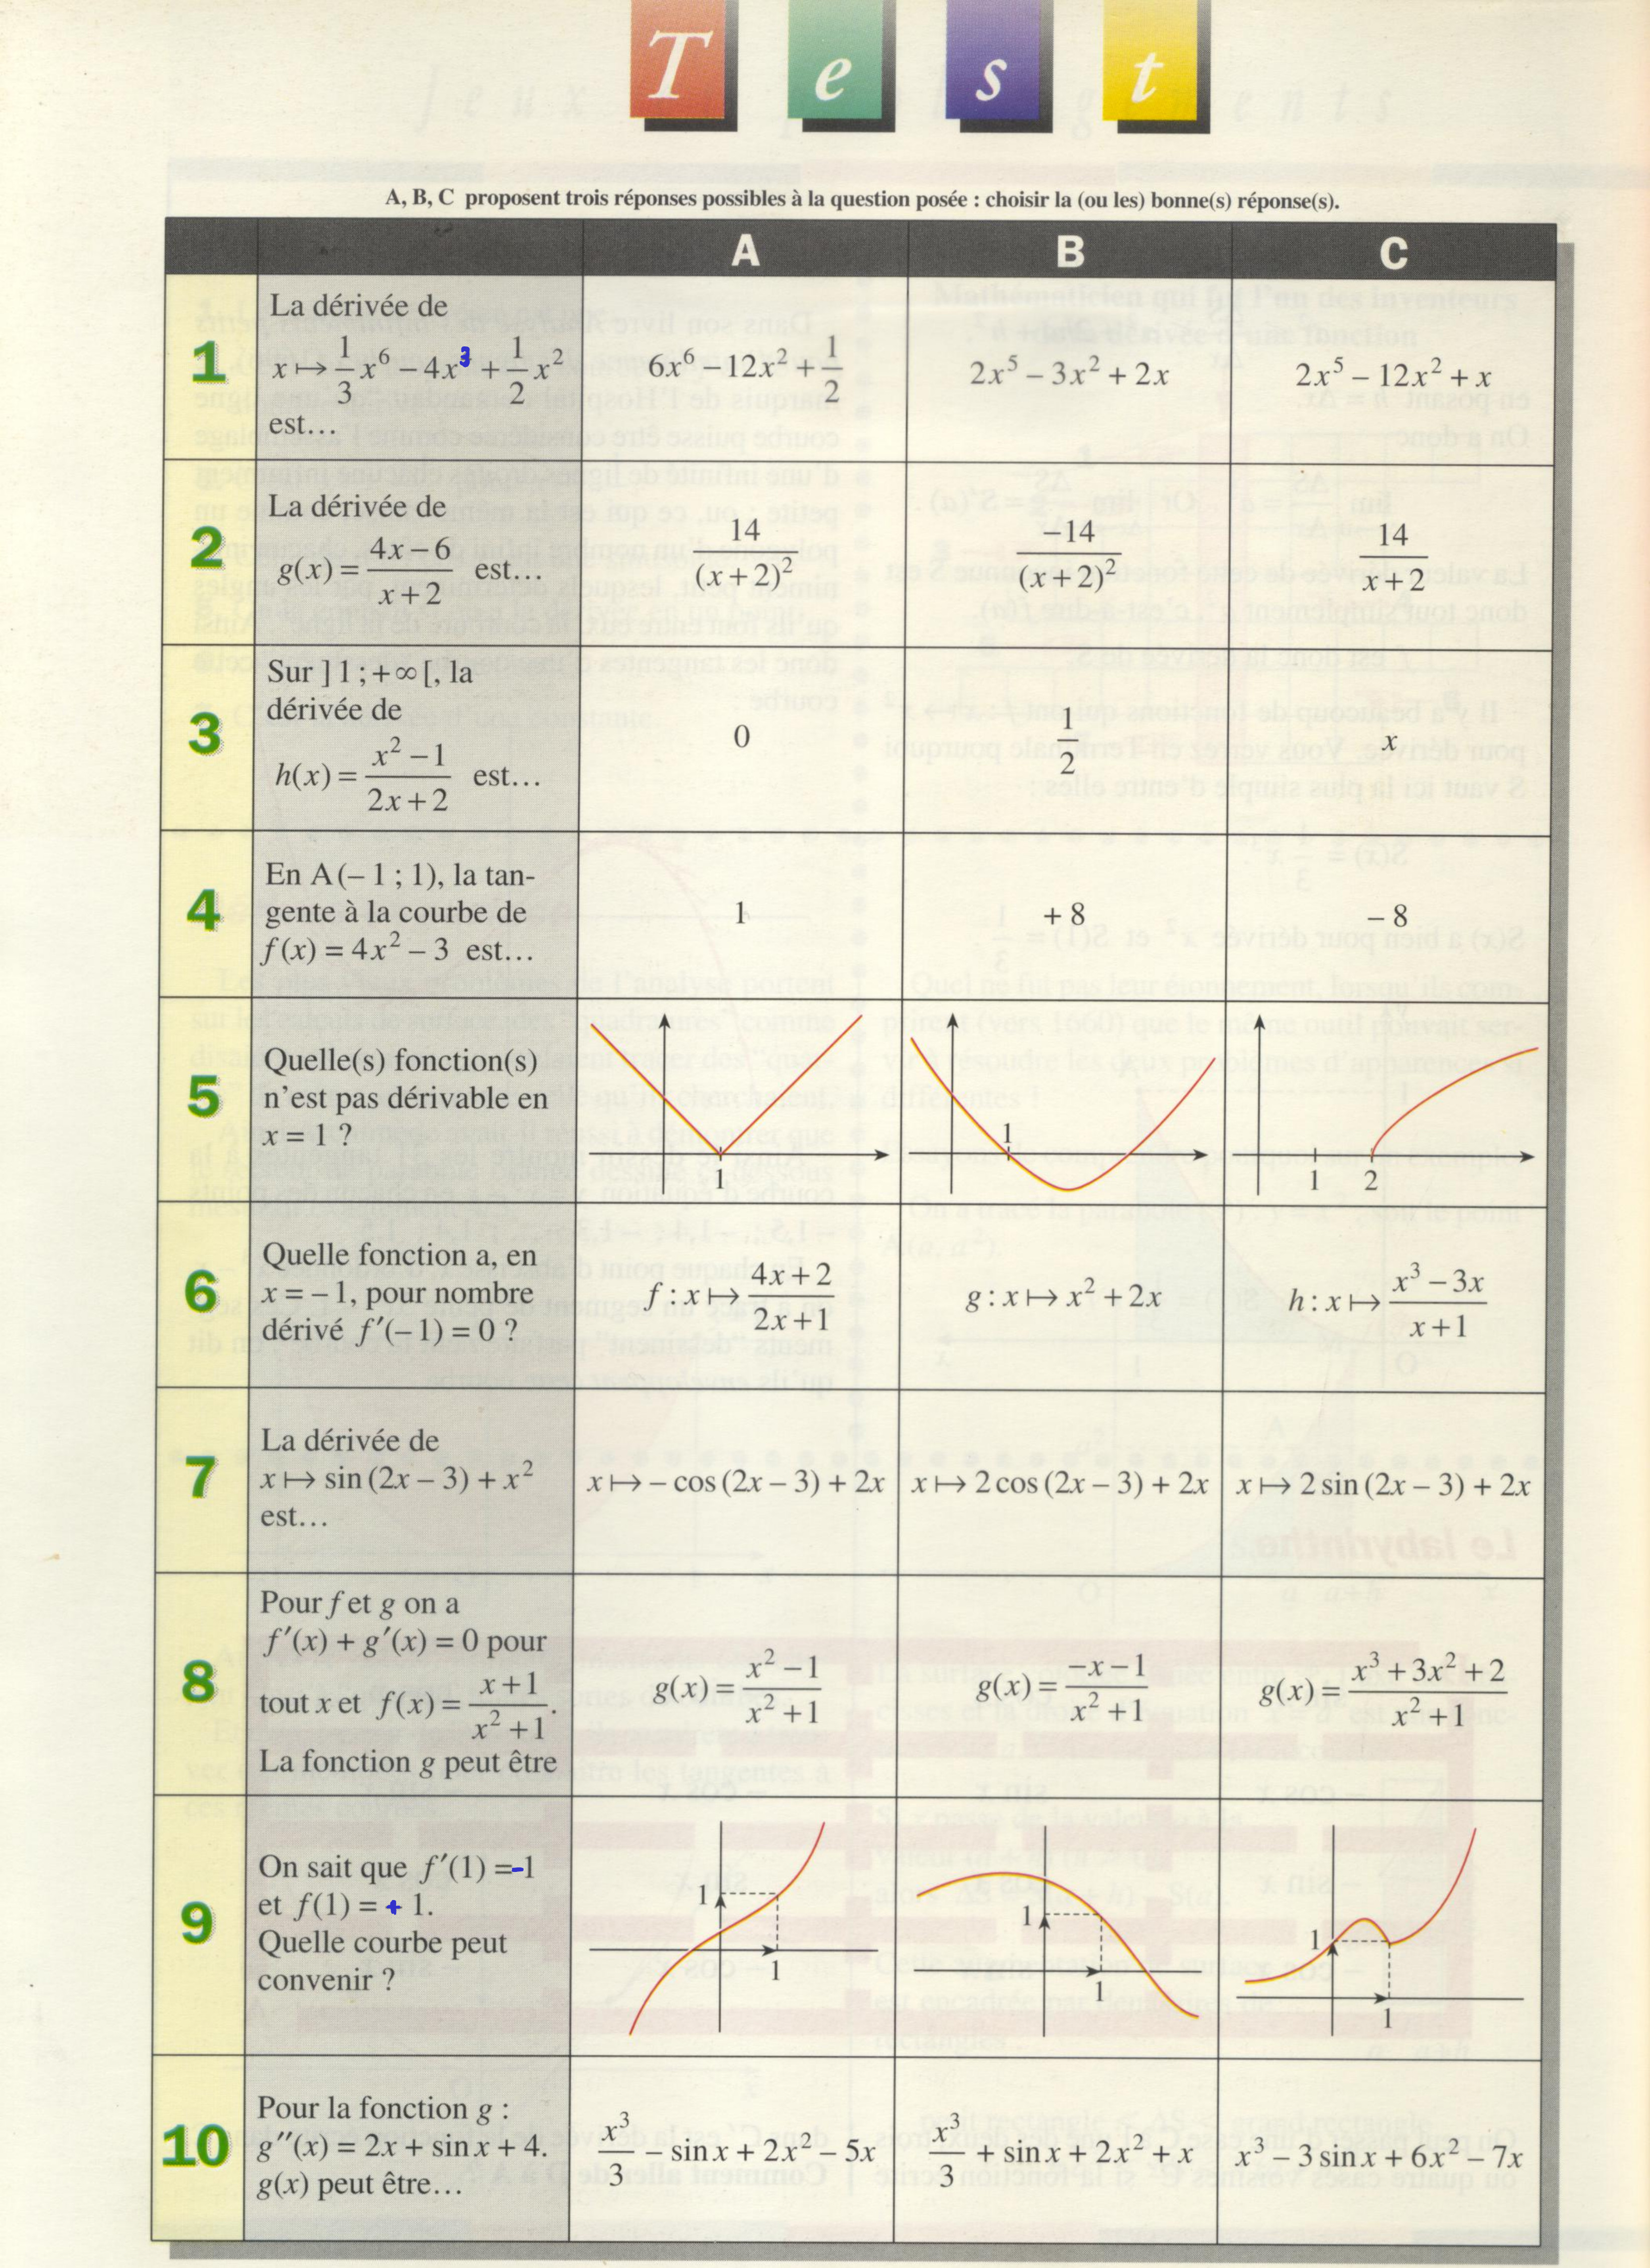 Test
A, B, C proposent trois réponses possibles à la question posée : choisir la (ou les) bonne(s) réponse(s).
A B C
1
La dérivée de
x ↦ 1/3 x⁶ – 4x³ + 1/2 x²
est…
6x⁶ – 12x² + 1/2
2x⁵ – 3x² + 2x
2x⁵ – 12x² + x
2
La dérivée de
g(x) = (4x – 6)/(x + 2) est…
14/(x + 2)²
–14/(x + 2)²
14/(x + 2)
3
Sur ] 1 ; + ∞ [, la
dérivée de
h(x) = (x² – 1)/(2x + 2) est…
0
1/2
x
4
En A (– 1 ; 1), la tan-
gente à la courbe de
f(x) = 4x² – 3 est…
1
+ 8
– 8
5
Quelle(s) fonction(s)
n'est pas dérivable en
x = 1 ?
1
1
1 2
6
Quelle fonction a, en
x = – 1, pour nombre
dérivé f′(– 1) = 0 ?
f : x ↦ (4x + 2)/(2x + 1)
g : x ↦ x² + 2x
h : x ↦ (x³ – 3x)/(x + 1)
7
La dérivée de
x ↦ sin (2x – 3) + x²
est…
x ↦ – cos (2x – 3) + 2x
x ↦ 2 cos (2x – 3) + 2x
x ↦ 2 sin (2x – 3) + 2x
8
Pour f et g on a
f′(x) + g′(x) = 0 pour
tout x et f(x) = (x + 1)/(x² + 1).
La fonction g peut être
g(x) = (x² – 1)/(x² + 1)
g(x) = (–x – 1)/(x² + 1)
g(x) = (x³ + 3x² + 2)/(x² + 1)
9
On sait que f′(1) = -1
et f(1) = + 1.
Quelle courbe peut
convenir ?
1
1
1
1
1
1
10
Pour la fonction g :
g″(x) = 2x + sin x + 4.
g(x) peut être…
x³/3 – sin x + 2x² – 5x
x³/3 + sin x + 2x² + x
x³ – 3 sin x + 6x² – 7x